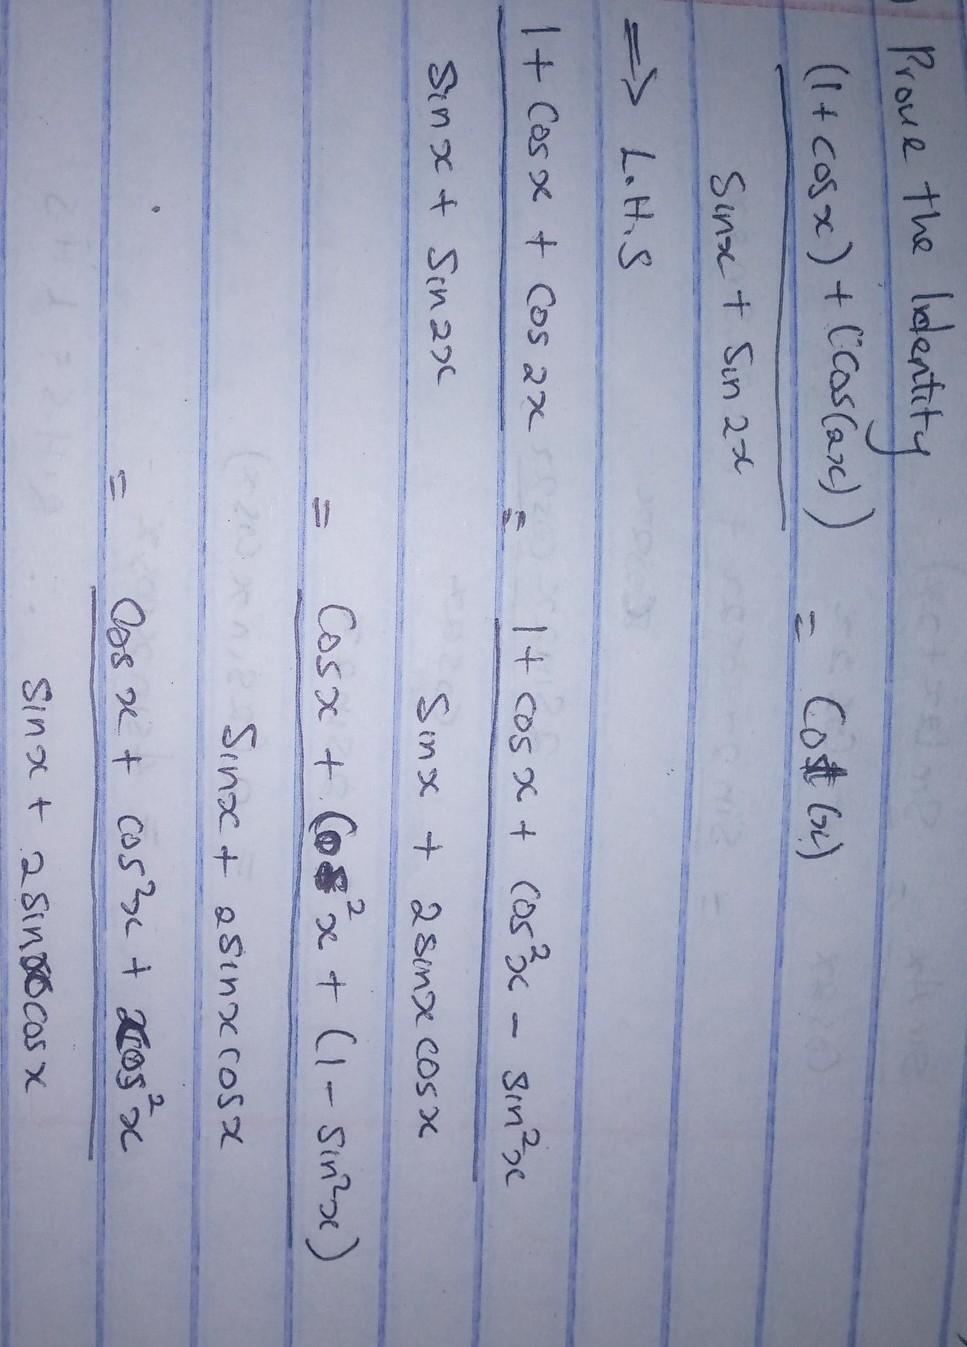 Prove the Identity
(1+cosx) + (cos(2x)) = Cot(x)
Sinx + Sin 2x
=> L.H.S
1 + Cosx + Cos 2x = 1 + cosx + cos²x - sin²x
Sinx + Sin2x Sinx + 2sinx cosx
= Cosx + Cos²x + (1 - Sin²x)
Sinx + 2sinx cosx
= Cosx + cos²x + cos²x
Sinx + 2sinx cosx